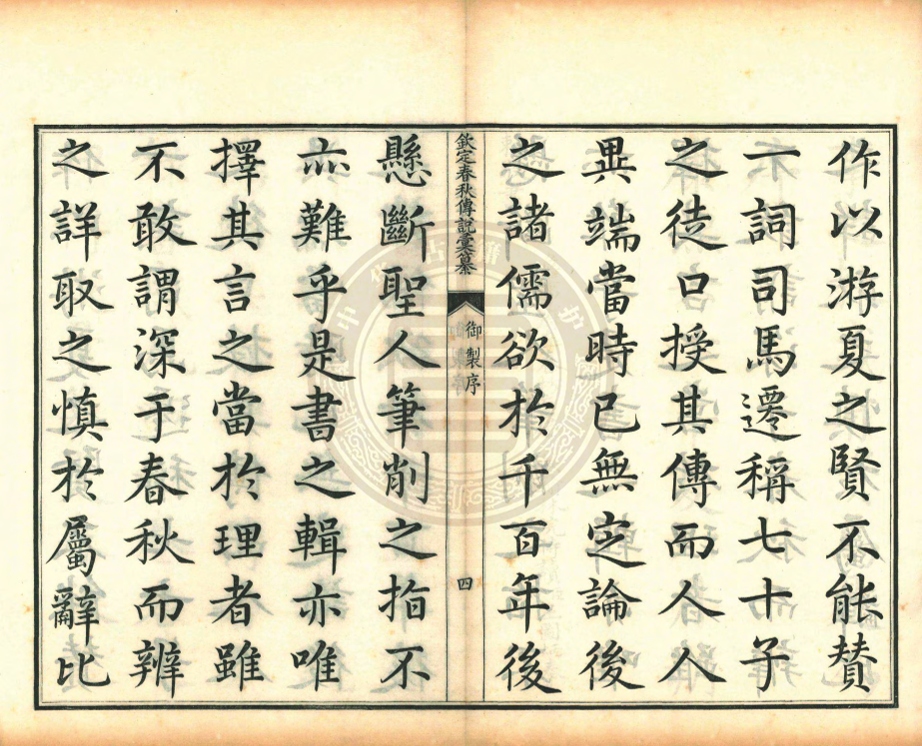 作以游夏之賢不能賛
一詞司馬遷稱七十子
之徒口授其傳而人人
異端當時已無定論後
之諸儒欲於千百年後
欽定春秋傳說彙纂
御製序
四
懸斷聖人筆削之指不
亦難乎是書之輯亦唯
擇其言之當於理者雖
不敢謂深于春秋而辨
之詳取之慎於屬辭比